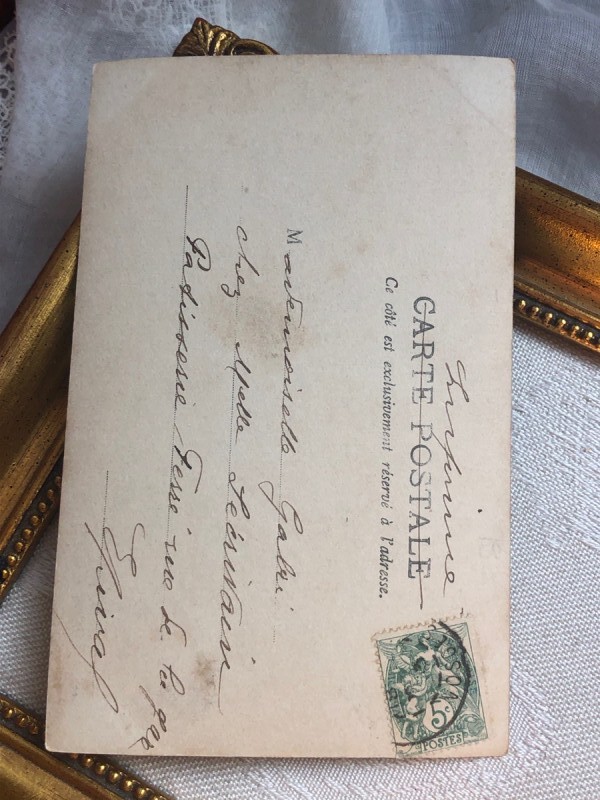 CARTE POSTALE
Ce côté est exclusivement réservé à l'adresse.
Mademoiselle Gabri
chez Melle Lecrivain
Patisserie Fesse rue de la gare
Epinal
5c
POSTES